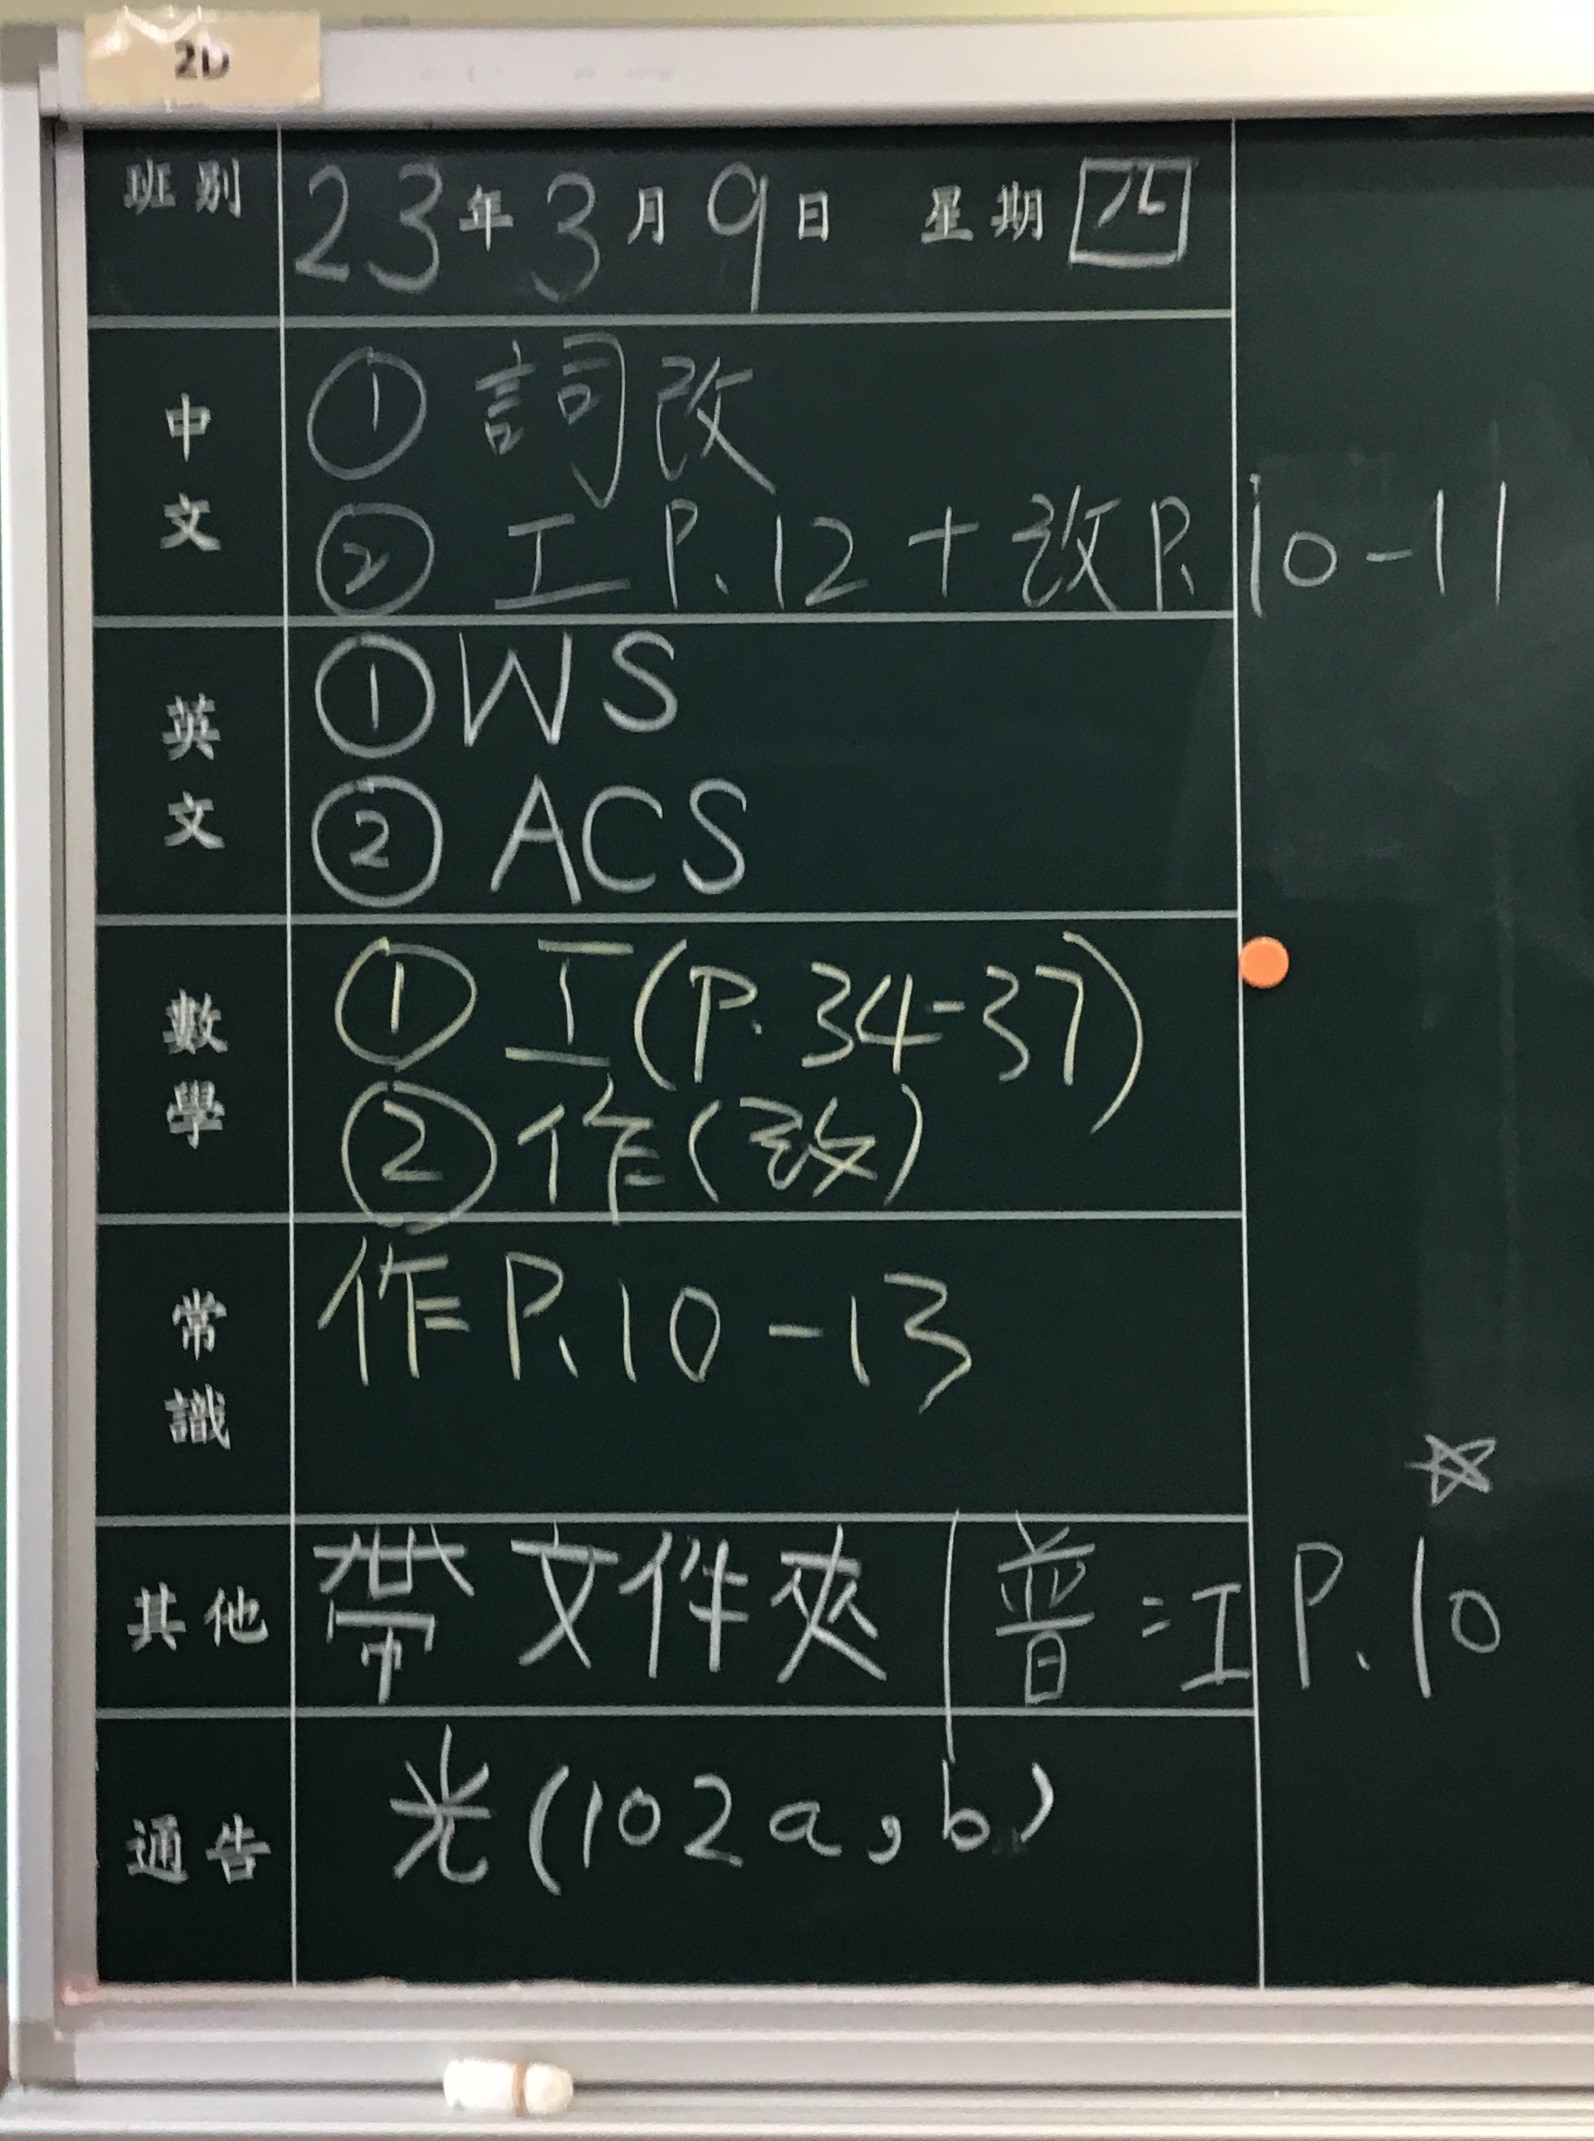 2D
班別 23年3月9日 星期四
中文 ① 詞改
② 工 P.12 + 改 P.10-11
英文 ① WS
② ACS
數學 ① 工(P.34-37)
② 作(改)
常識 作 P.10-13
其他 帶文件夾 | 普:工 P.10
通告 光(102a,b)